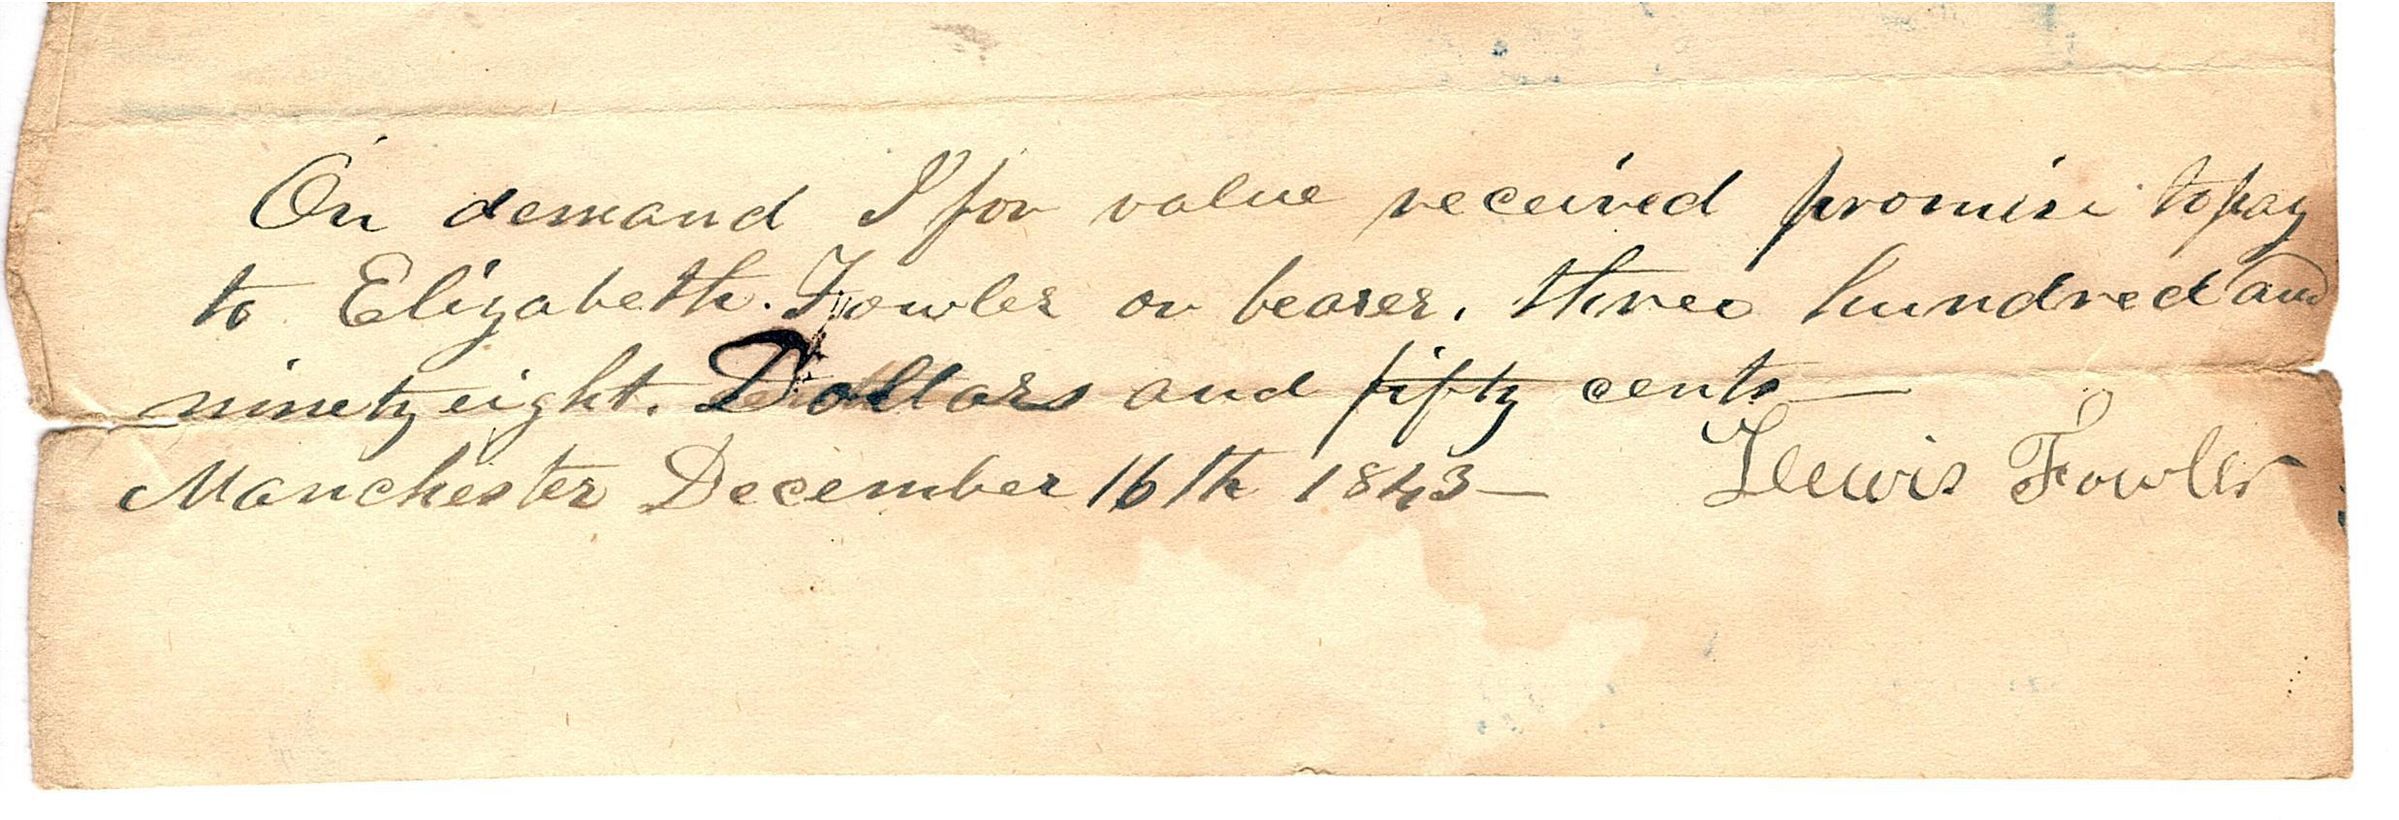 On demand I for value received promise to pay
to Elizabeth. Fowler or bearer. three hundred and
ninety eight. Dollars and fifty cents —
Manchester December 16th 1843 — Lewis Fowler